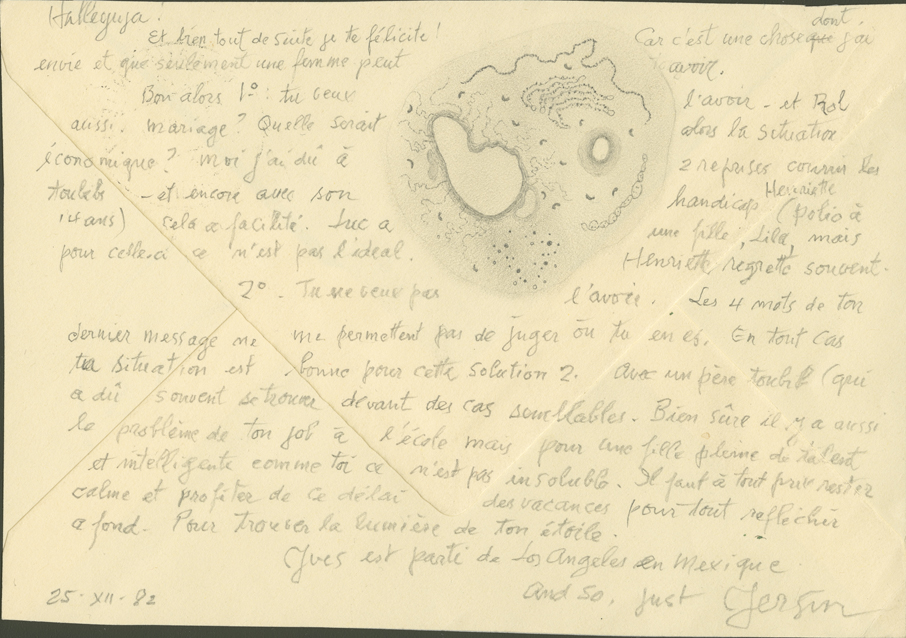 Halleguya!
Et bien tout de suite je te félicite! Car c'est une chose que dont j'ai
envie et que seulement une femme peut avoir.
Bon alors 1° : tu veux l'avoir - et Rol
aussi. mariage? Quelle serait alors la situation
économique? moi j'ai dû à 2 reprises courrir les
toubibs - et encore avec son handicap (polio à
14 ans) cela a facilité. Luc a une fille, Lila, mais Henriette
pour celle-ci ce n'est pas l'idéal. Henriette regrette souvent.
2°. Tu ne veux pas l'avoir. Les 4 mots de ton
dernier message ne me permettent pas de juger où tu en es. En tout cas
ta situation est bonne pour cette solution 2. Avec un père toubib (qui
a dû souvent se trouver devant des cas semblables. Bien sûre il y a aussi
le problème de ton job à l'école mais pour une fille pleine de talent
et intelligente comme toi ce n'est pas insoluble. Il faut à tout prix rester
calme et profiter de ce délai des vacances pour tout reflechir
a fond. Pour trouver la lumière de ton étoile.
Yves est parti de Los Angeles en Mexique
And so, just
25-XII-82